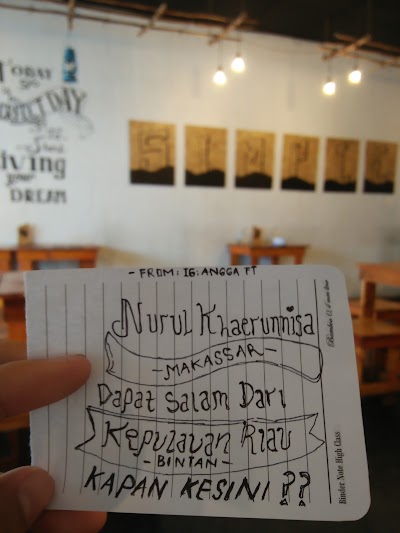 TODAY
DAY
Start
Living
your
DREAM
- FROM: IG: ANGGA FT
Nurul Khaerunnisa
- MAKASSAR -
Dapat Salam Dari
Kepulauan Riau
- BINTAN -
KAPAN KESINI ??
Binder Note High Class